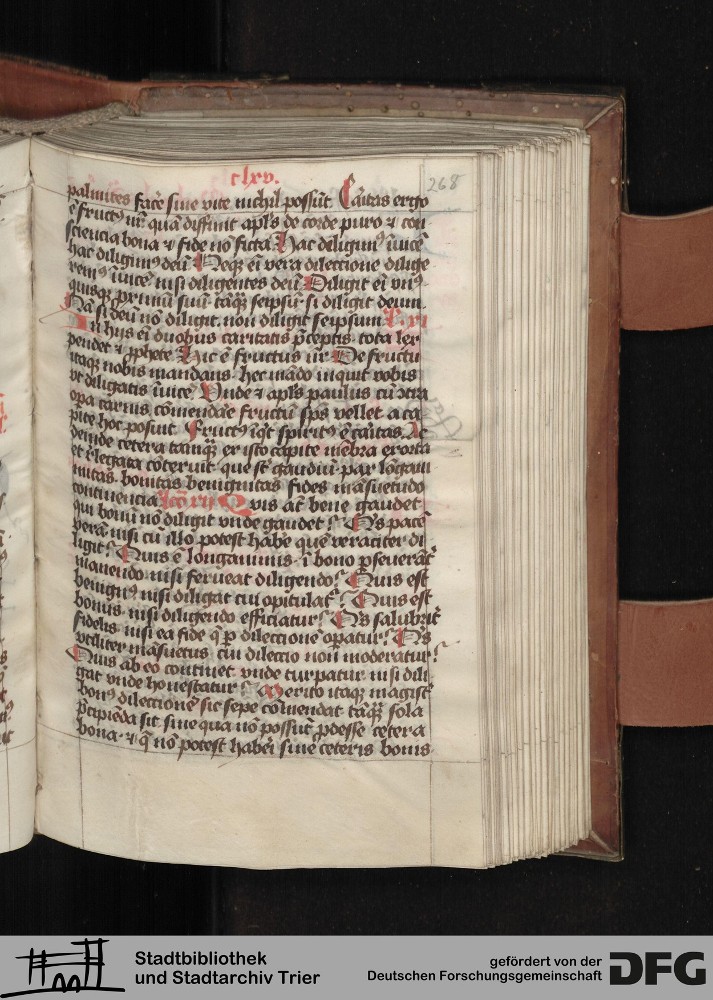 clxv.
268
palmites facē sine vite nichil possūt Cāitas ergo
ē fructꝰ nr̄ quā diffinit apl̄s de corde puro ⁊ con
sciencia bona ⁊ fide nō ficta Hac diligimꝰ īuicē
hac diligimꝰ deū Neqꝫ eī vera dileccione dilige
remꝰ īuicē nisi diligentes deū Diligit eī vnꝰ
quisqꝫ primū suū tāqꝫ seipsū si diligit deum.
Nā si deū nō diligit. non diligit seipsum
In hijs eī duobus caritatis p̄ceptis tota lex
pendet ⁊ ꝓphete Hic ē fructus nr̄ De fructu
itaqꝫ nobis mandans hec mādo inquit vobis
vt diligatis īuicē Vnde ⁊ apl̄s paulus cū ɔtra
opa carnis cōmendāe fructū sp̄s vellet a ca
pite hoc posuit Fructꝰ īqt spiritꝰ ē cāitas. Ac
deinde cetera tamqꝫ ex isto capite mēbra exorta
et religata cōtexuit que st̄ gaudiū pax lōgani
mitas. bonitas benignitas fides māsuetudo
continencia Quis at̄ bene gaudet
qui bonū nō diligit vnde gaudet? Qis pacē
verā nisi cū illo potest habē quē veraciter di
ligit? Quis ē longanimis ī bono ꝑseuerāt̄
manendo nisi ferueat diligendo? Quis est
benignꝰ nisi diligat cui opitulat̄? Quis est
bonus nisi diligendo efficiatur? Qis salubrit̄
fidelis nisi ea fide q̄ ꝑ dileccione opatur? Qis
vtiliter māsuetus cui dileccio non moderatur?
Quis ab eo continet vnde turpatur nisi dili
gat vnde honestatur? Merito itaqꝫ magist̄
bonꝰ dileccionē sic sepe cōmendat tāqꝫ sola
p̄cipiēda sit sine qua nō possūt ꝓdesse cetera
bona. ⁊ q̄ nō potest haberi sine ceteris bonis
Stadtbibliothek
und Stadtarchiv Trier
gefördert von der
Deutschen Forschungsgemeinschaft
DFG